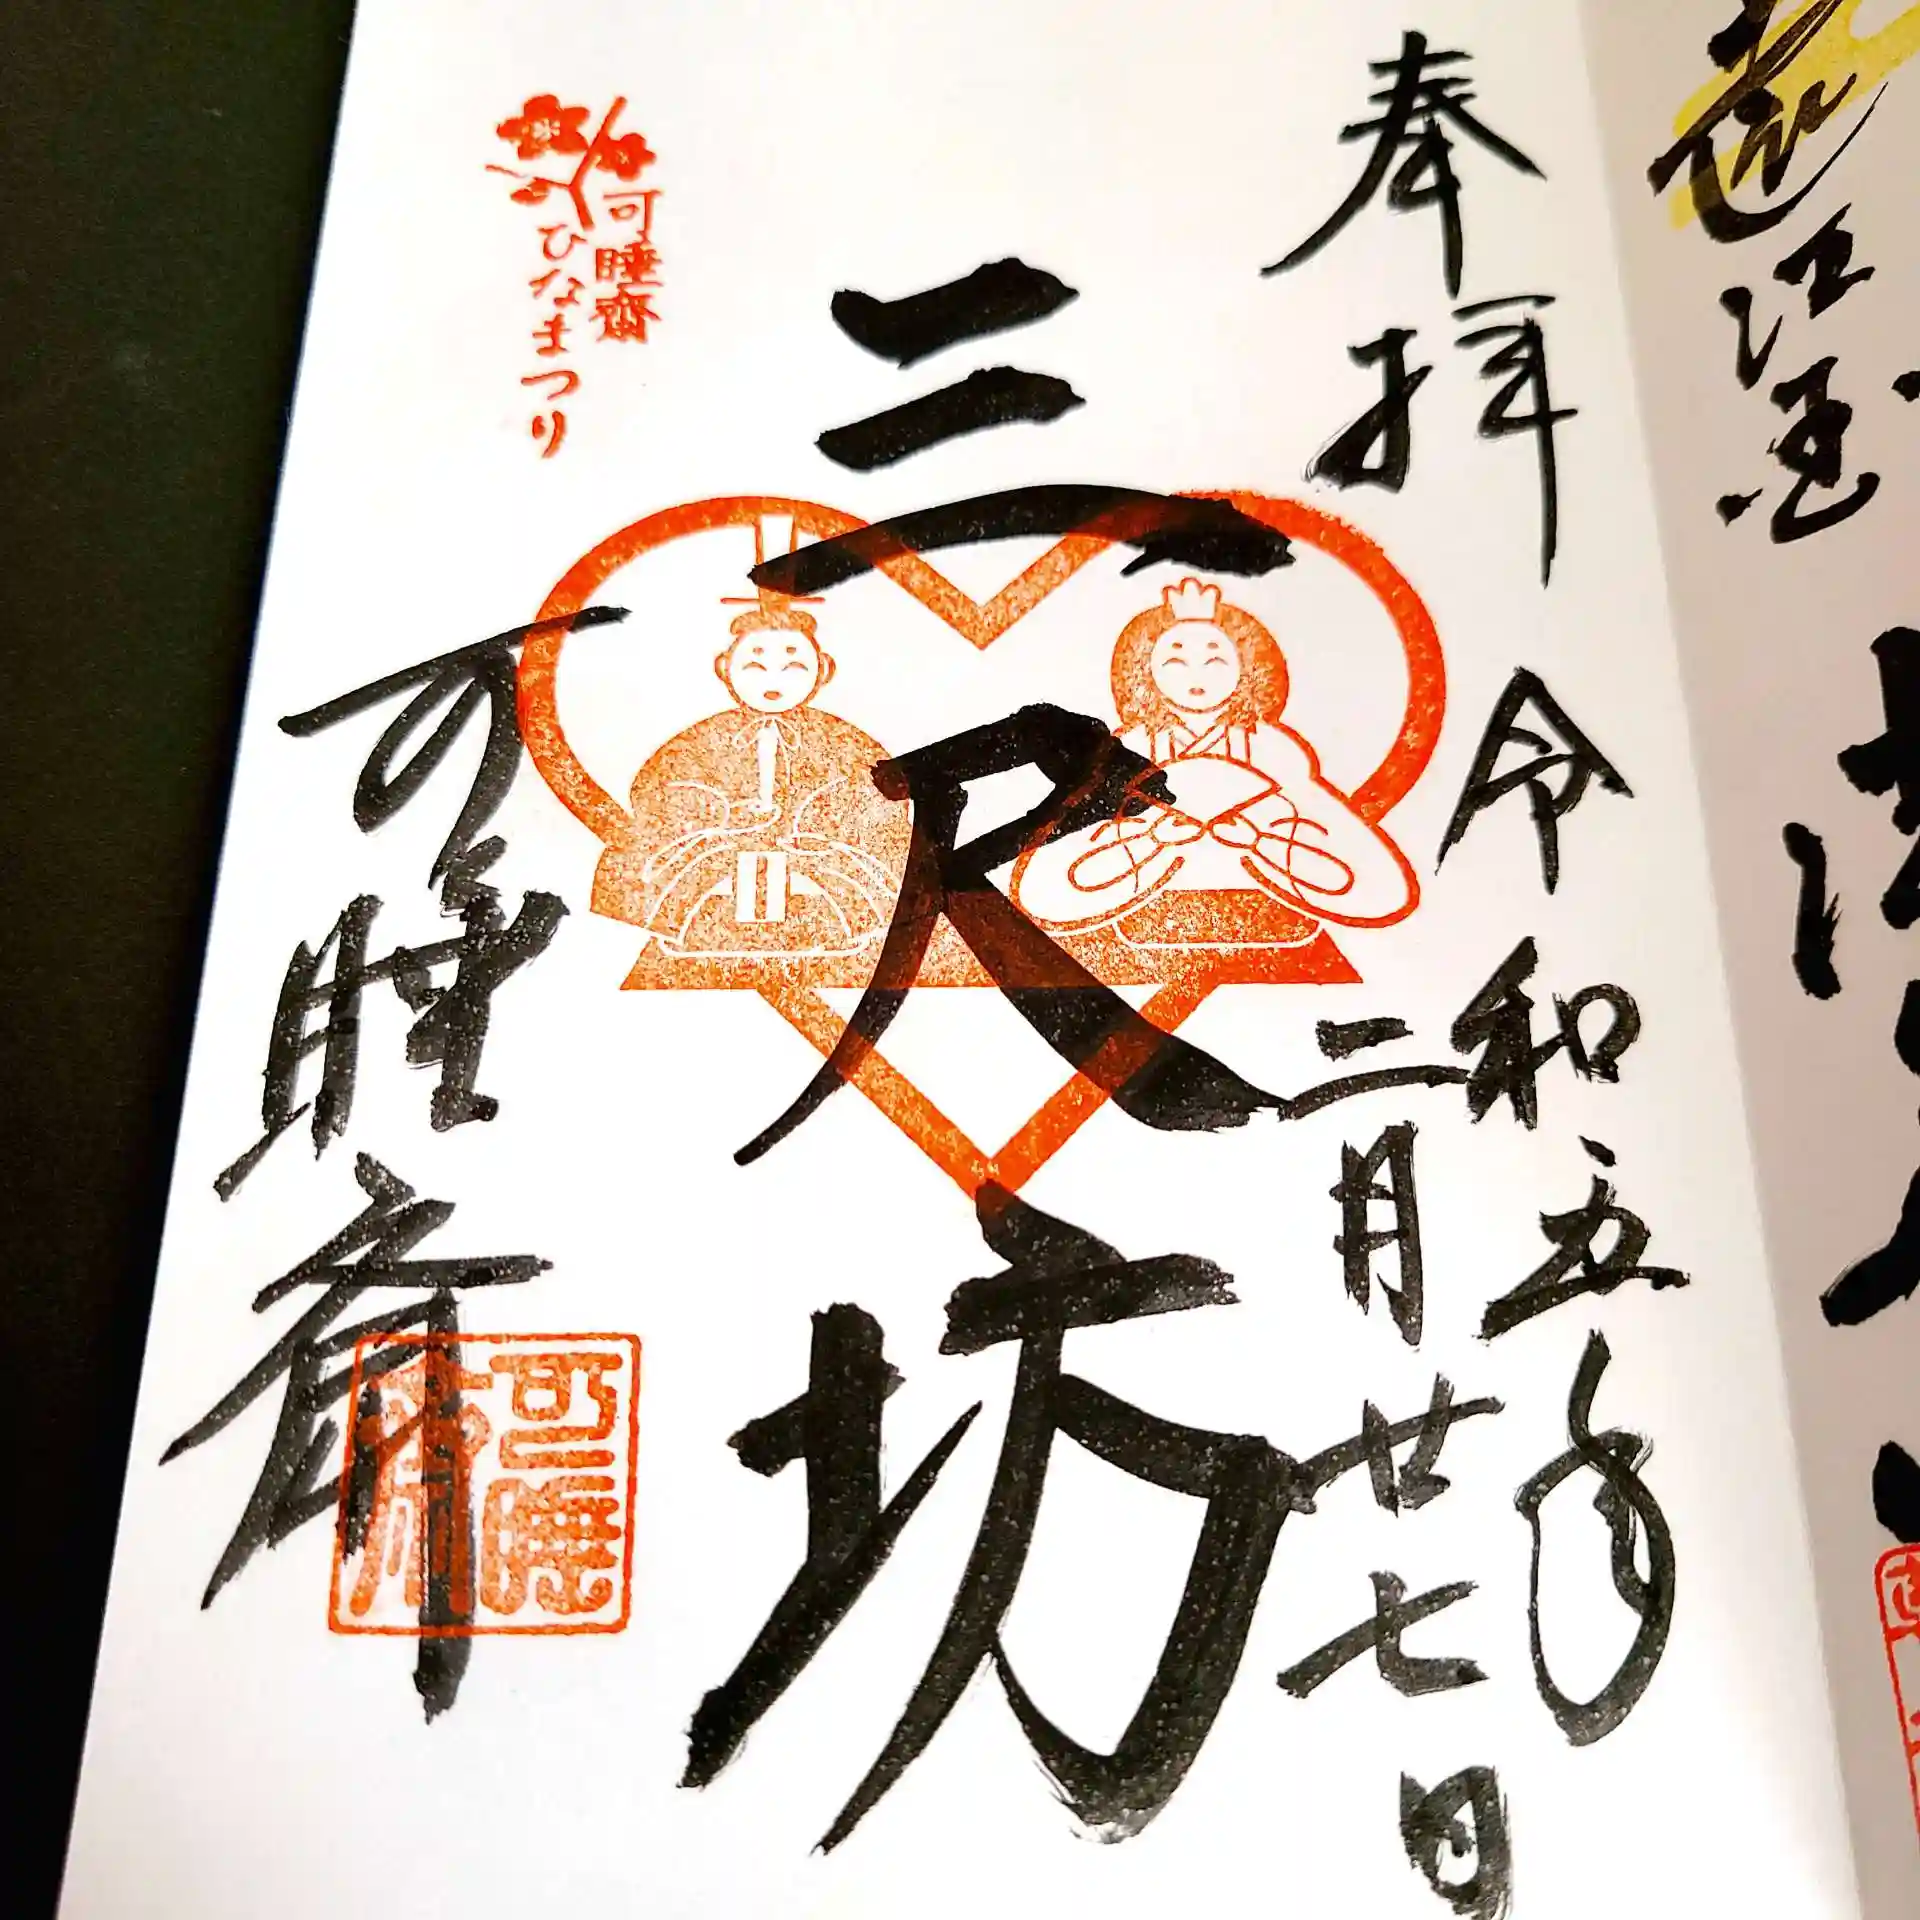 奉拝
令和五年
二月廿七日
三尺坊
可睡齋
ひなまつり
可睡斎
可睡齋